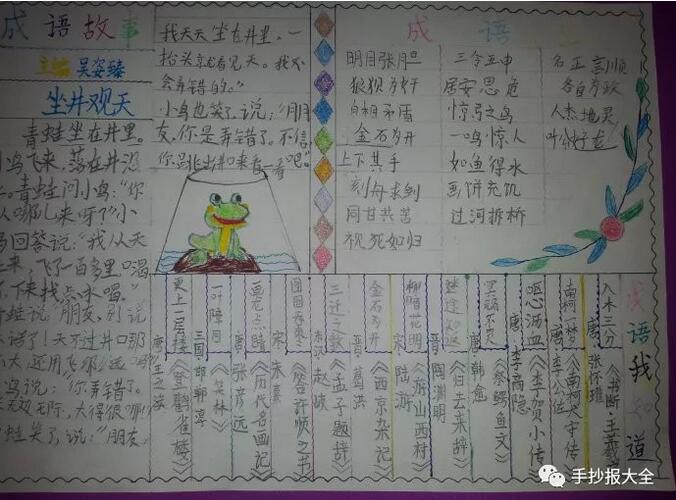 成语故事
主编 吴姿臻
坐井观天
青蛙坐在井里。
小鸟飞来,落在井沿
上。青蛙问小鸟:“你
从哪儿来呀?”小
鸟回答说:“我从天
上来,飞了一百多里,口渴
了,下来找点水喝。”
青蛙说:“朋友,别说
大话了!天不过井口那
么大,还用飞那么远吗?”
小鸟说:“你弄错了。
天无边无际,大得很哪!”
青蛙笑了,说:“朋友,
我天天坐在井里,一
抬头就看见天。我不
会弄错的。”
小鸟也笑了,说:“朋
友,你是弄错了。不信,
你跳出井口来看一看吧。”
成语
明目张胆 三令五申 名正言顺
狼狈为奸 居安思危 各自为政
自相矛盾 惊弓之鸟 人杰地灵
金石为开 一鸣惊人 叶公好龙
上下其手 如鱼得水
刻舟求剑 画饼充饥
同甘共苦 过河拆桥
视死如归
成语我知道
入木三分 唐·张怀瓘《书断·王羲之》
南柯一梦 唐·李公佐《南柯太守传》
呕心沥血 唐·李商隐《李贺小传》
唐·韩愈《祭鳄鱼文》
迷途知返 晋·陶渊明《归去来辞》
柳暗花明 宋·陆游《游山西村》
金石为开 晋·葛洪《西京杂记》
三迁之教 东汉·赵岐《孟子题辞》
宋·朱熹《答许顺之书》
画龙点睛 唐·张彦远《历代名画记》
一叶障目 三国·邯郸淳《笑林》
更上一层楼 唐·王之涣《登鹳雀楼》
手抄报大全